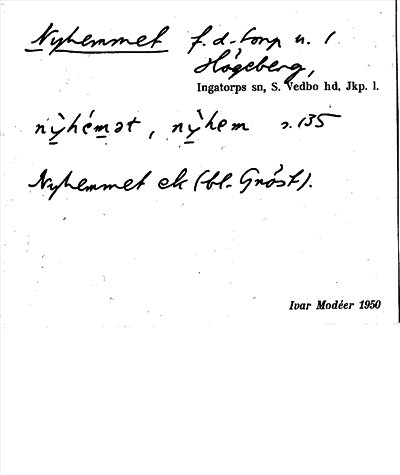 Nyhemmet f. d. torp u. 1
Högeberg,
Ingatorps sn, S. Vedbo hd, Jkp. l.
nỳhémət, nỳhem s. 135
Nyhemmet ek (bl. Gröst).
Ivar Modéer 1950